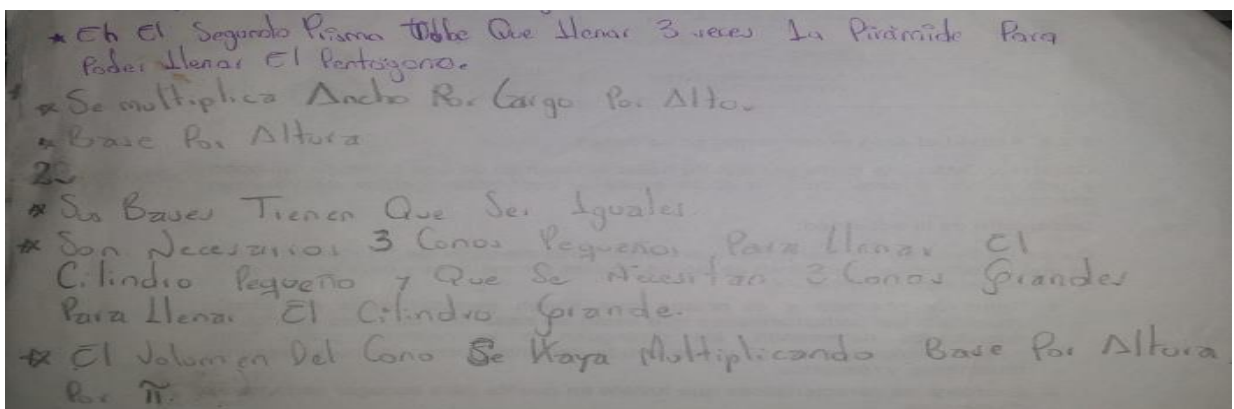 * En El Segundo Prisma Debe Que Llenar 3 veces La Pirámide Para
Poder Llenar El Pentágono.
* Se multiplica Ancho Por Largo Por Alto.
* Base Por Altura
2
* Sus Bases Tienen Que Ser Iguales.
* Son Necesarios 3 Conos Pequeños Para Llenar El
Cilindro Pequeño y Que Se Necesitan 3 Conos Grandes
Para Llenar El Cilindro Grande.
* El Volumen Del Cono Se Haya Multiplicando Base Por Altura
Por π.